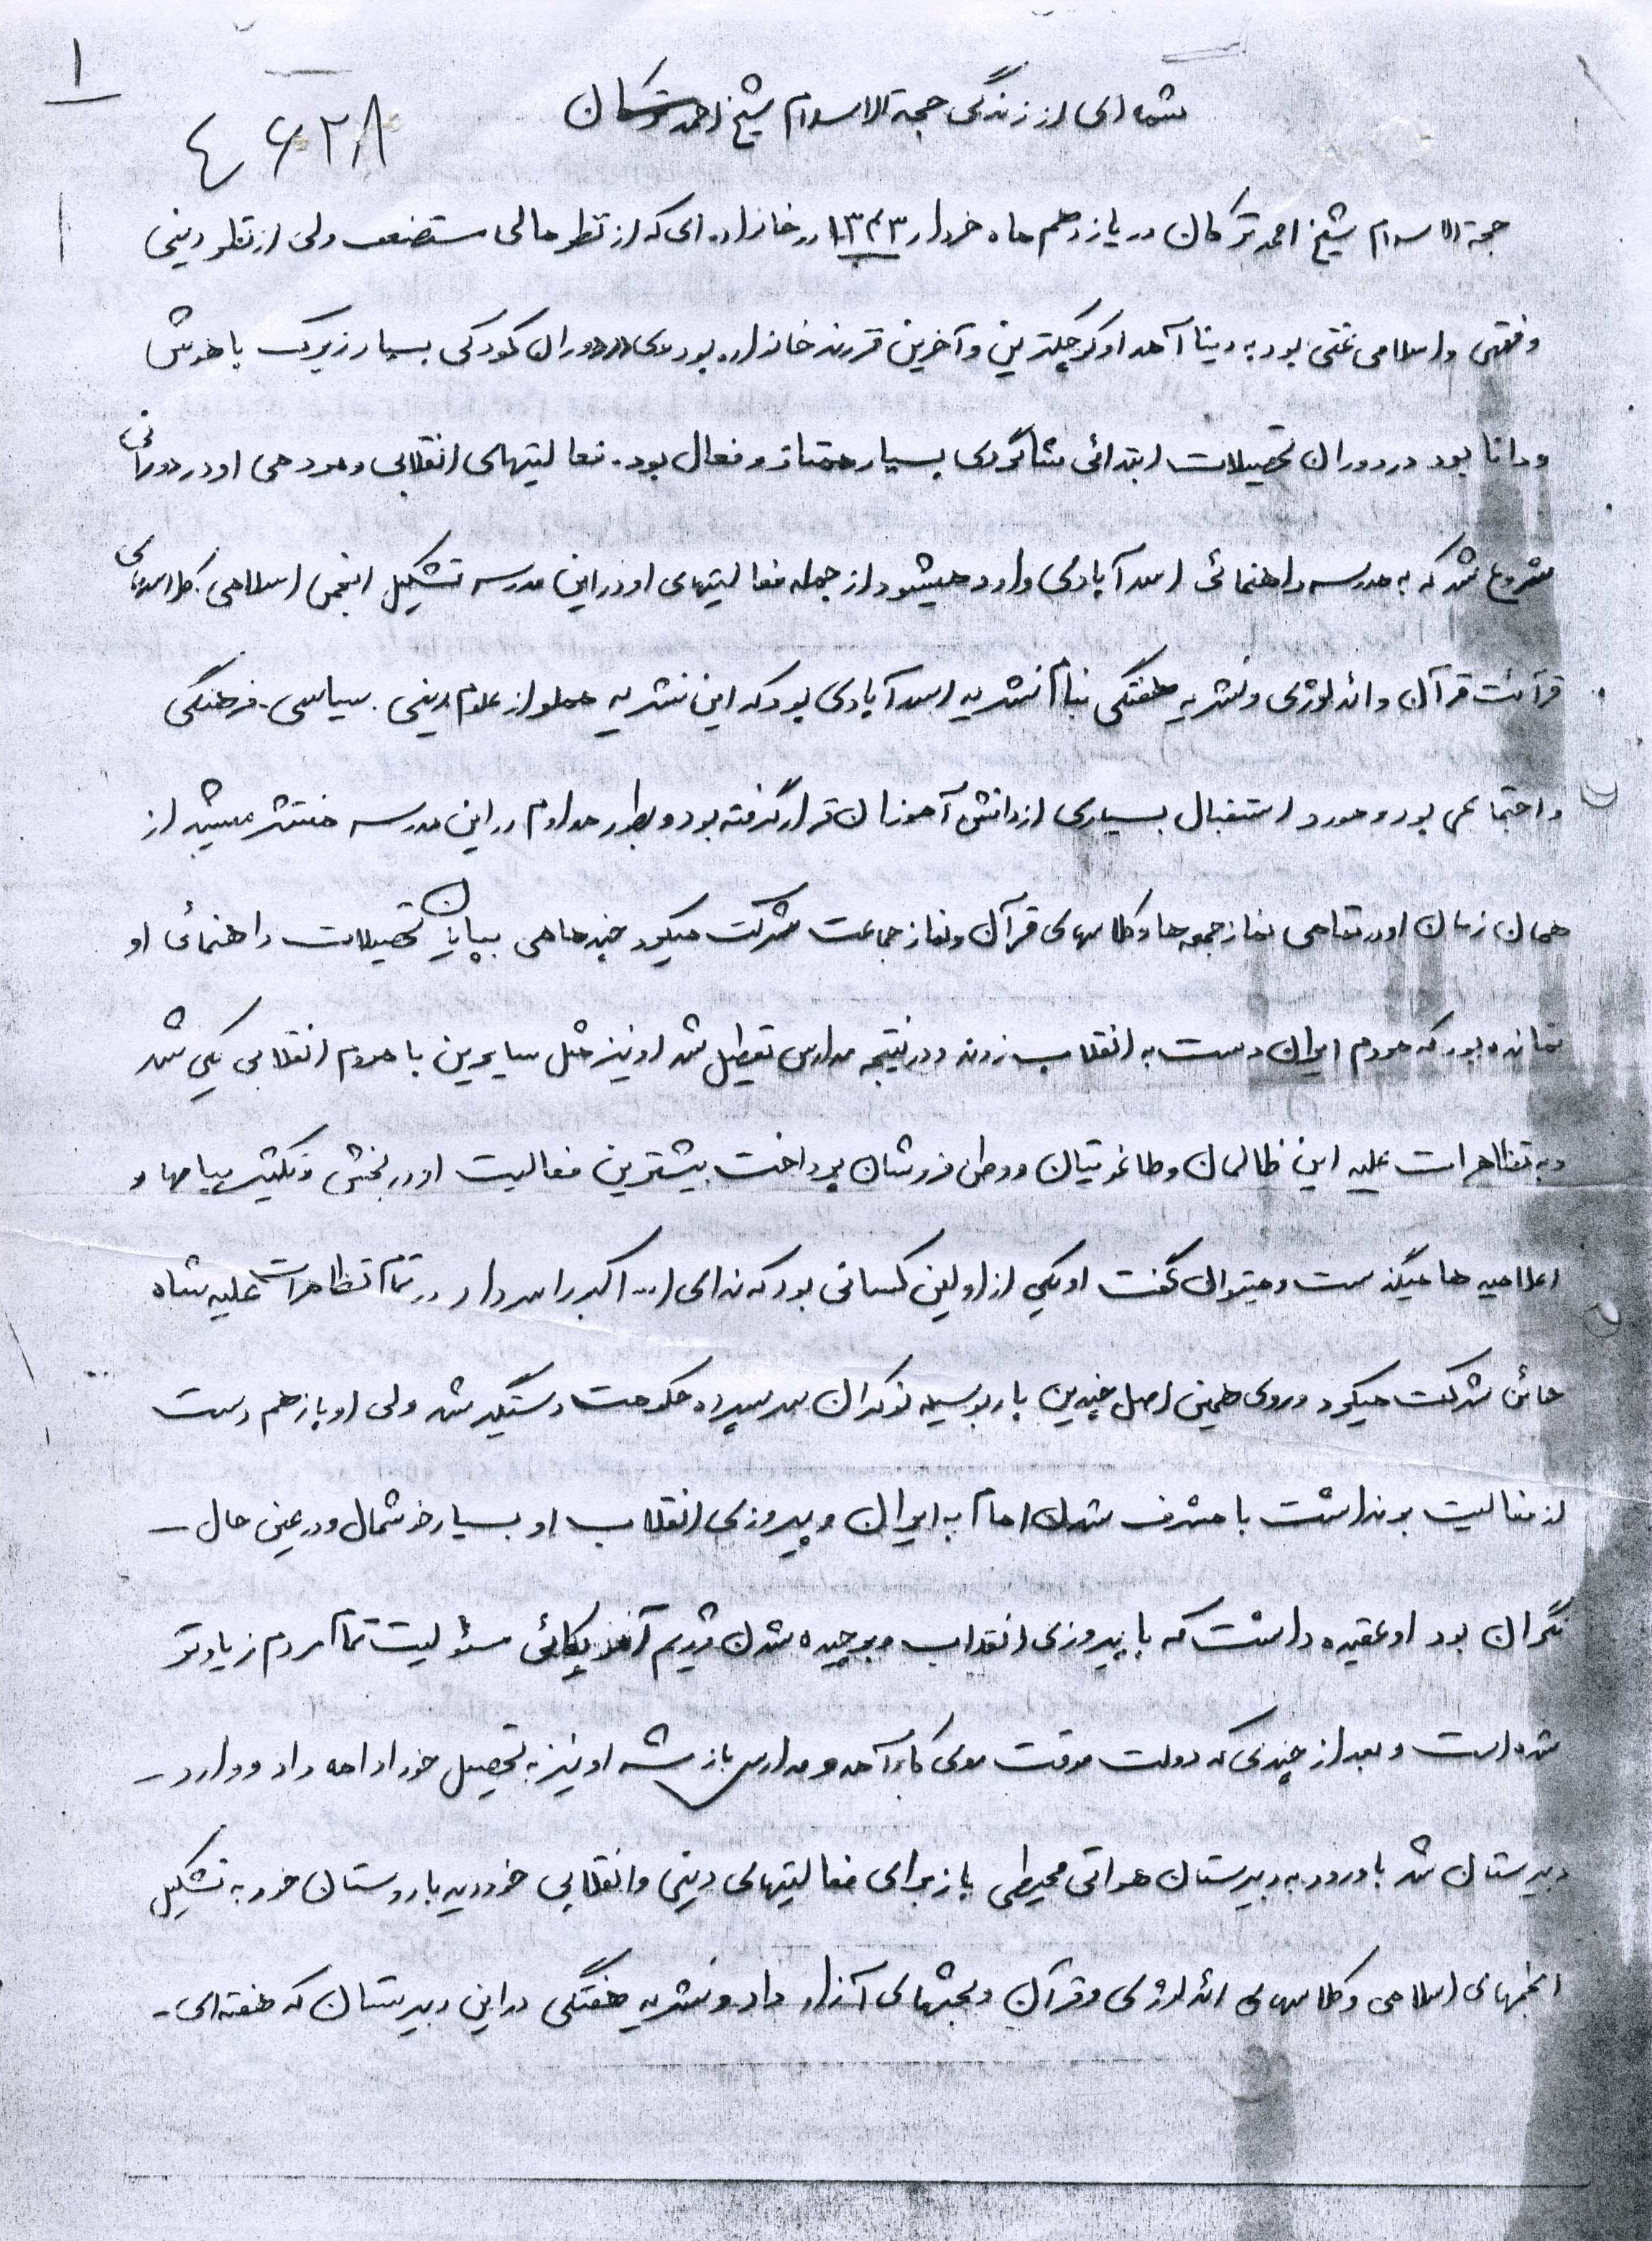 ۱
شمه ای از زندگی حجة الاسلام شیخ احمد ترکان
۴۶۲۸
حجة الاسلام شیخ احمد ترکان در یازدهم ماه خرداد ۱۳۴۳ در خانواده ای که از نظر مالی مستضعف ولی از نظر دینی
و فقهی و اسلامی غنی بود به دینا آمد او کوچکترین و آخرین فرزند خانواده بود وی در دوران کودکی بسیار زیرک با هوش
و دانا بود در دوران تحصیلات ابتدائی شاگردی بسیار ممتاز و فعال بود. فعالیتهای انقلابی و مردمی او در دورانی
شروع شد که به مدرسه راهنمائی اسد آبادی وارد میشود از جمله فعالیتهای او در این مدرسه تشکیل انجمن اسلامی. کلاسهای
قرائت قرآن و ائدلوژی و نشریه هفتگی بنام نشریه اسد آبادی بود که این نشریه مملو از علوم دینی. سیاسی. فرهنگی
و اجتماعی بود و مورد استقبال بسیاری از دانش آموزان قرار گرفته بود و بطور مداوم در این مدرسه منتشر میشد از
همان زمان او در تمامی نماز جمعه ها و کلاسهای قرآن و نماز جماعت شرکت میکرد چند ماهی بپایان تحصیلات راهنمائی او
نمانده بود که مردم ایران دست به انقلاب زدند و در نتیجه مدارس تعطیل شد او نیز مثل سایرین با مردم انقلابی یکی شد
و به تظاهرات علیه این ظالمان و طاغوتیان و وطن فروشان پرداخت بیشترین فعالیت او در بخش و تکثیر پیامها و
اعلامیه ها میگذست و میتوان گفت او یکی از اولین کسانی بود که ندای ا... اکبر را سر داد در تمام تظاهرات علیه شاه
خائن شرکت میکرد و روی همین اصل چندین بار بوسیله نوکران سر سپرده حکومت دستگیر شد ولی او باز هم دست
از فعالیت بر نداشت با مشرف شدن امام به ایران و پیروزی انقلاب او بسیار خوشحال و در عین حال -
نگران بود او عقیده داشت که با پیروزی انقلاب و بر چیده شدن رژیم آمریکائی مسئولیت تمام مردم زیادتر
شده است و بعد از چندی که دولت موقت روی کار آمد و مدارس باز شد او نیز به تحصیل خود ادامه داد و وارد -
دبیرستان شد با ورود به دبیرستان هراتی محیطی باز برای فعالیتهای دینی و انقلابی خود دید با دوستان خود به تشکیل
انجمنهای اسلامی و کلاسهای ائدلوژی و قرآن و بحثهای آزاد داد و نشریه هفتگی در این دبیرستان که هفته ای -